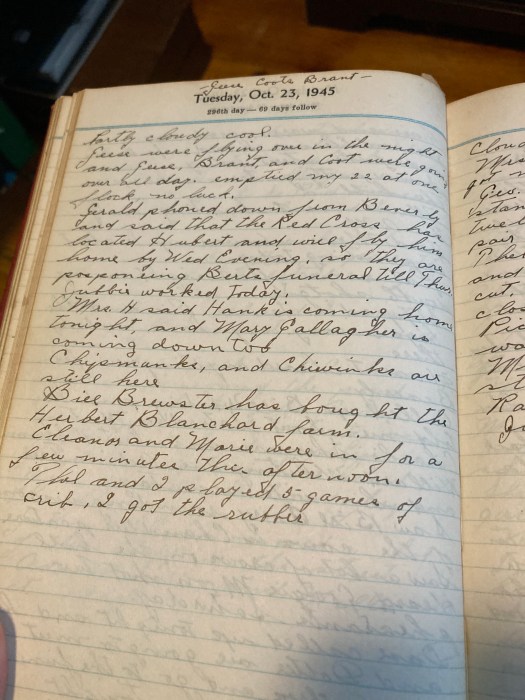 -Geese Coots Brant-
Tuesday, Oct. 23, 1945
296th day — 69 days follow
Partly cloudy cool.
Geese were flying over in the night
and Geese, Brant and Coot were going
over all day. emptied my 22 at one
flock, no luck.
Gerald phoned down from Beverly
and said that the Red Cross has
located Hubert and will fly him
home by Wed Evening. so they are
posponing Berts funeral till Thur.
worked Today.
Mrs. H said Hank is coming home
tonight and Mary Gallagher is
coming down too
Chipmanks, and Chiwinks are
still here
Bill Brewster has bought the
Herbert Blanchard farm.
Eleanor and Marie were in for a
few minutes this afternoon.
Phil and I played 5 games of
crib, I got the rubber
Cloud
Mrs
got
Geo.
stan
two
pair
Ther
and
cut,
clos
Pic
wa
M
Ra